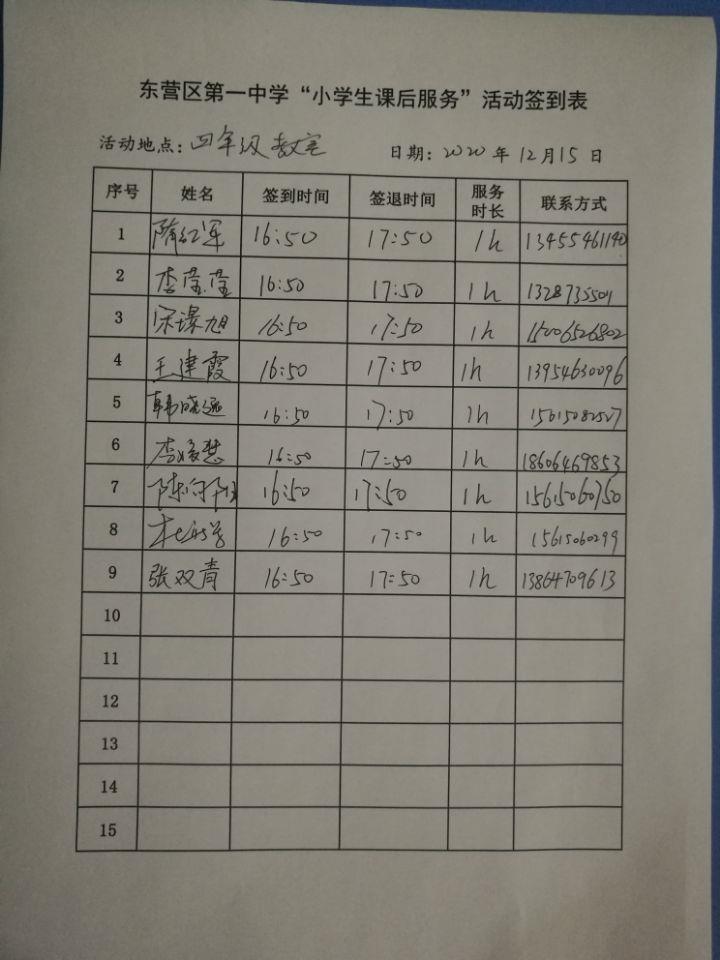 东营区第一中学“小学生课后服务”活动签到表
活动地点：四年级教室 日期：2020年12月15日
序号 姓名 签到时间 签退时间 服务时长 联系方式
1 隋红军 16:50 17:50 1h 13455461140
2 李莹莹 16:50 17:50 1h 1328735504
3 宋璟旭 16:50 17:50 1h 15006526802
4 王建霞 16:50 17:50 1h 13954630096
5 韩晓远 16:50 17:50 1h 15615082527
6 16:50 17:50 1h 18606469853
7 16:50 17:50 1h 15615060750
8 16:50 17:50 1h 15615060299
9 张双青 16:50 17:50 1h 13864709613
10
11
12
13
14
15